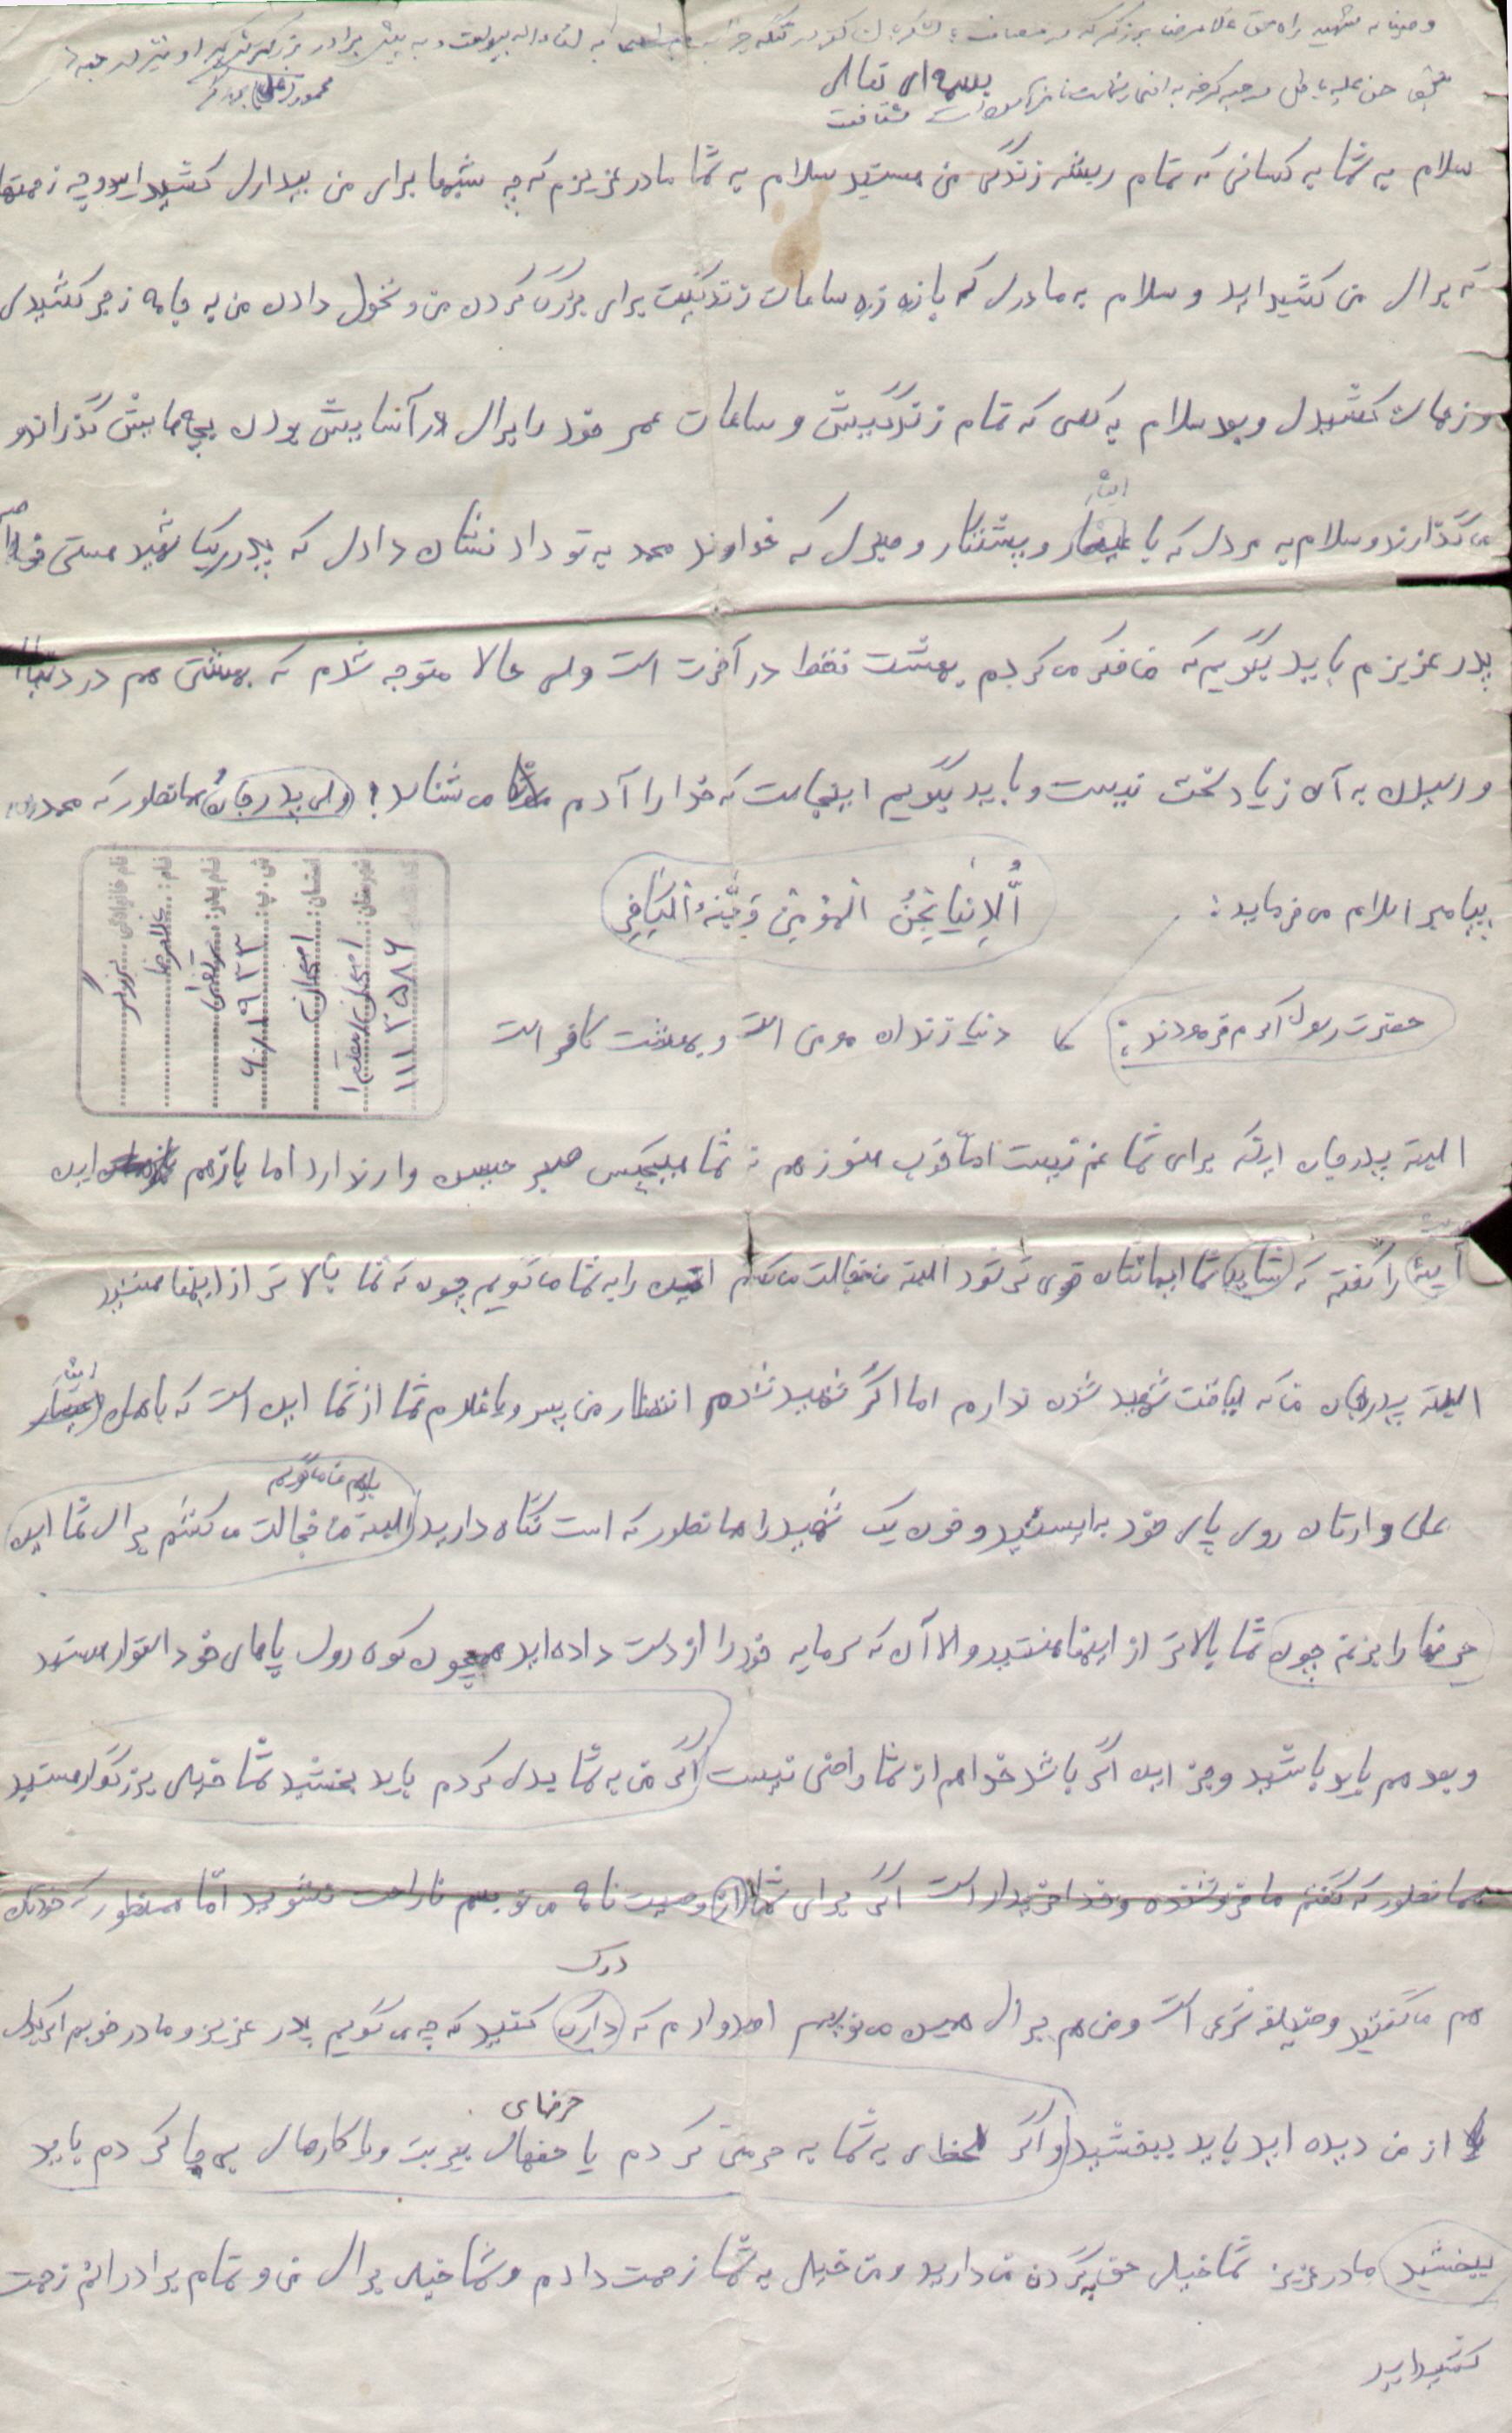 وصیتنامه شهید راه حق غلامرضا برزگر که در عملیات
بسمه ای تعالی
سلام به شما به کسانی که تمام ریشه زندگی من هستید سلام به شما مادر عزیزم که چه شبها برای من بیداری کشیدایدو چه زحمتها
که برای من کشیداید و سلام به مادری که یازه زره ساعات زندگیت برای بزرگ کردن من و تحول دادن من به جامه زجر کشیدی
و زحمات کشیدی وبعد سلام به کسی که تمام زندگییش و ساعات عمر خود را برای در آسایش بودن بچه هایش گذراندو
می گذارندو سلام به مردی که با ایثار و پشتکار و صبری که خداوند محمد به تو داد نشان دادی که پدر یک شهید هستی
پدر عزیزم باید بگویم که من فکر می کردم بهشت فقط در آخرت است ولی حالا متوجه شدم که بهشتی هم در دنیا
و رسیدن به آن زیاد سخت نیست و باید بگویم اینجاست که خدا را آدم می شناسد! (ولی پدر جان) همانطور که محمد
پیامبر اسلام می فرماید: أُلدنیا سِجنُ المؤمِن وَجَنَهُ الکافِرِ
حضرت رسول اکرم فرمودند: دنیا زندان مومن است و بهشت کافر است
نام خانوادگی: برزگر
نام: غلامرضا
نام پدر:
ش.پ: ۶۰/۱۹۳۳
استان: اصفهان
شهرستان: اصفهان
۱۱۱۳۵۸۶
البته پدرجان اینکه برای شما غم نیست امّا خوب هنوز هم نه شما هیچکس صبر حسین وار ندارد اما بازهم این
آیه را گفته که شاید شما ایمانتان قوی تر شود البته من خجالت می کشم این را به شما می گویم چون که شما بالا تر از اینها هستید
البته پدرجان من که لیاقت شهید شدن ندارم اما اگر شهید شدم انتظار من پسر و یا غلام شما از شما این است که با عمل ایثار
علی وارتان روی پای خود به ایستید و خون یک شهید را همانطور که است نگاه دارید (البته من خجالت می کشم برای شما این
بازهم من می گویم
حرفها را بزنم چون شما بالاتر از اینها هستید والا آن که سرمایه خود را از دست داده اید همچون کوه روی پاهای خود استوار هستید
و بعد هم باید باشید و جز این اگر باشد خدا هم از شما راضی نیست اگر من به شما بدی کردم باید بخشید شما خیلی بزرگوار هستید
همانطور که گفتم ما فروشنده و خدا خریدار است اگر برای شما وصیت نامه می نویسم ناراحت نشوید امّا همنطور که خودتان
هم می گفتید وظیفه شرعی است و من هم برای همین می نویسم امیدوارم که درک کنید که چه می گویم پدر عزیز و مادر خوبم اگر بدی
از من دیده اید باید ببخشید و اگر لحظه ای به شما به حرمتی کردم یا حرفهای بی ربت و یا کارهای بی جا کردم باید
ببخشید مادر عزیز شما خیلی حق به گردن من دارید و من خیلی به شما زحمت دادم و شما خیلی برای من و تمام برادرانم زحمت
کشیدایید